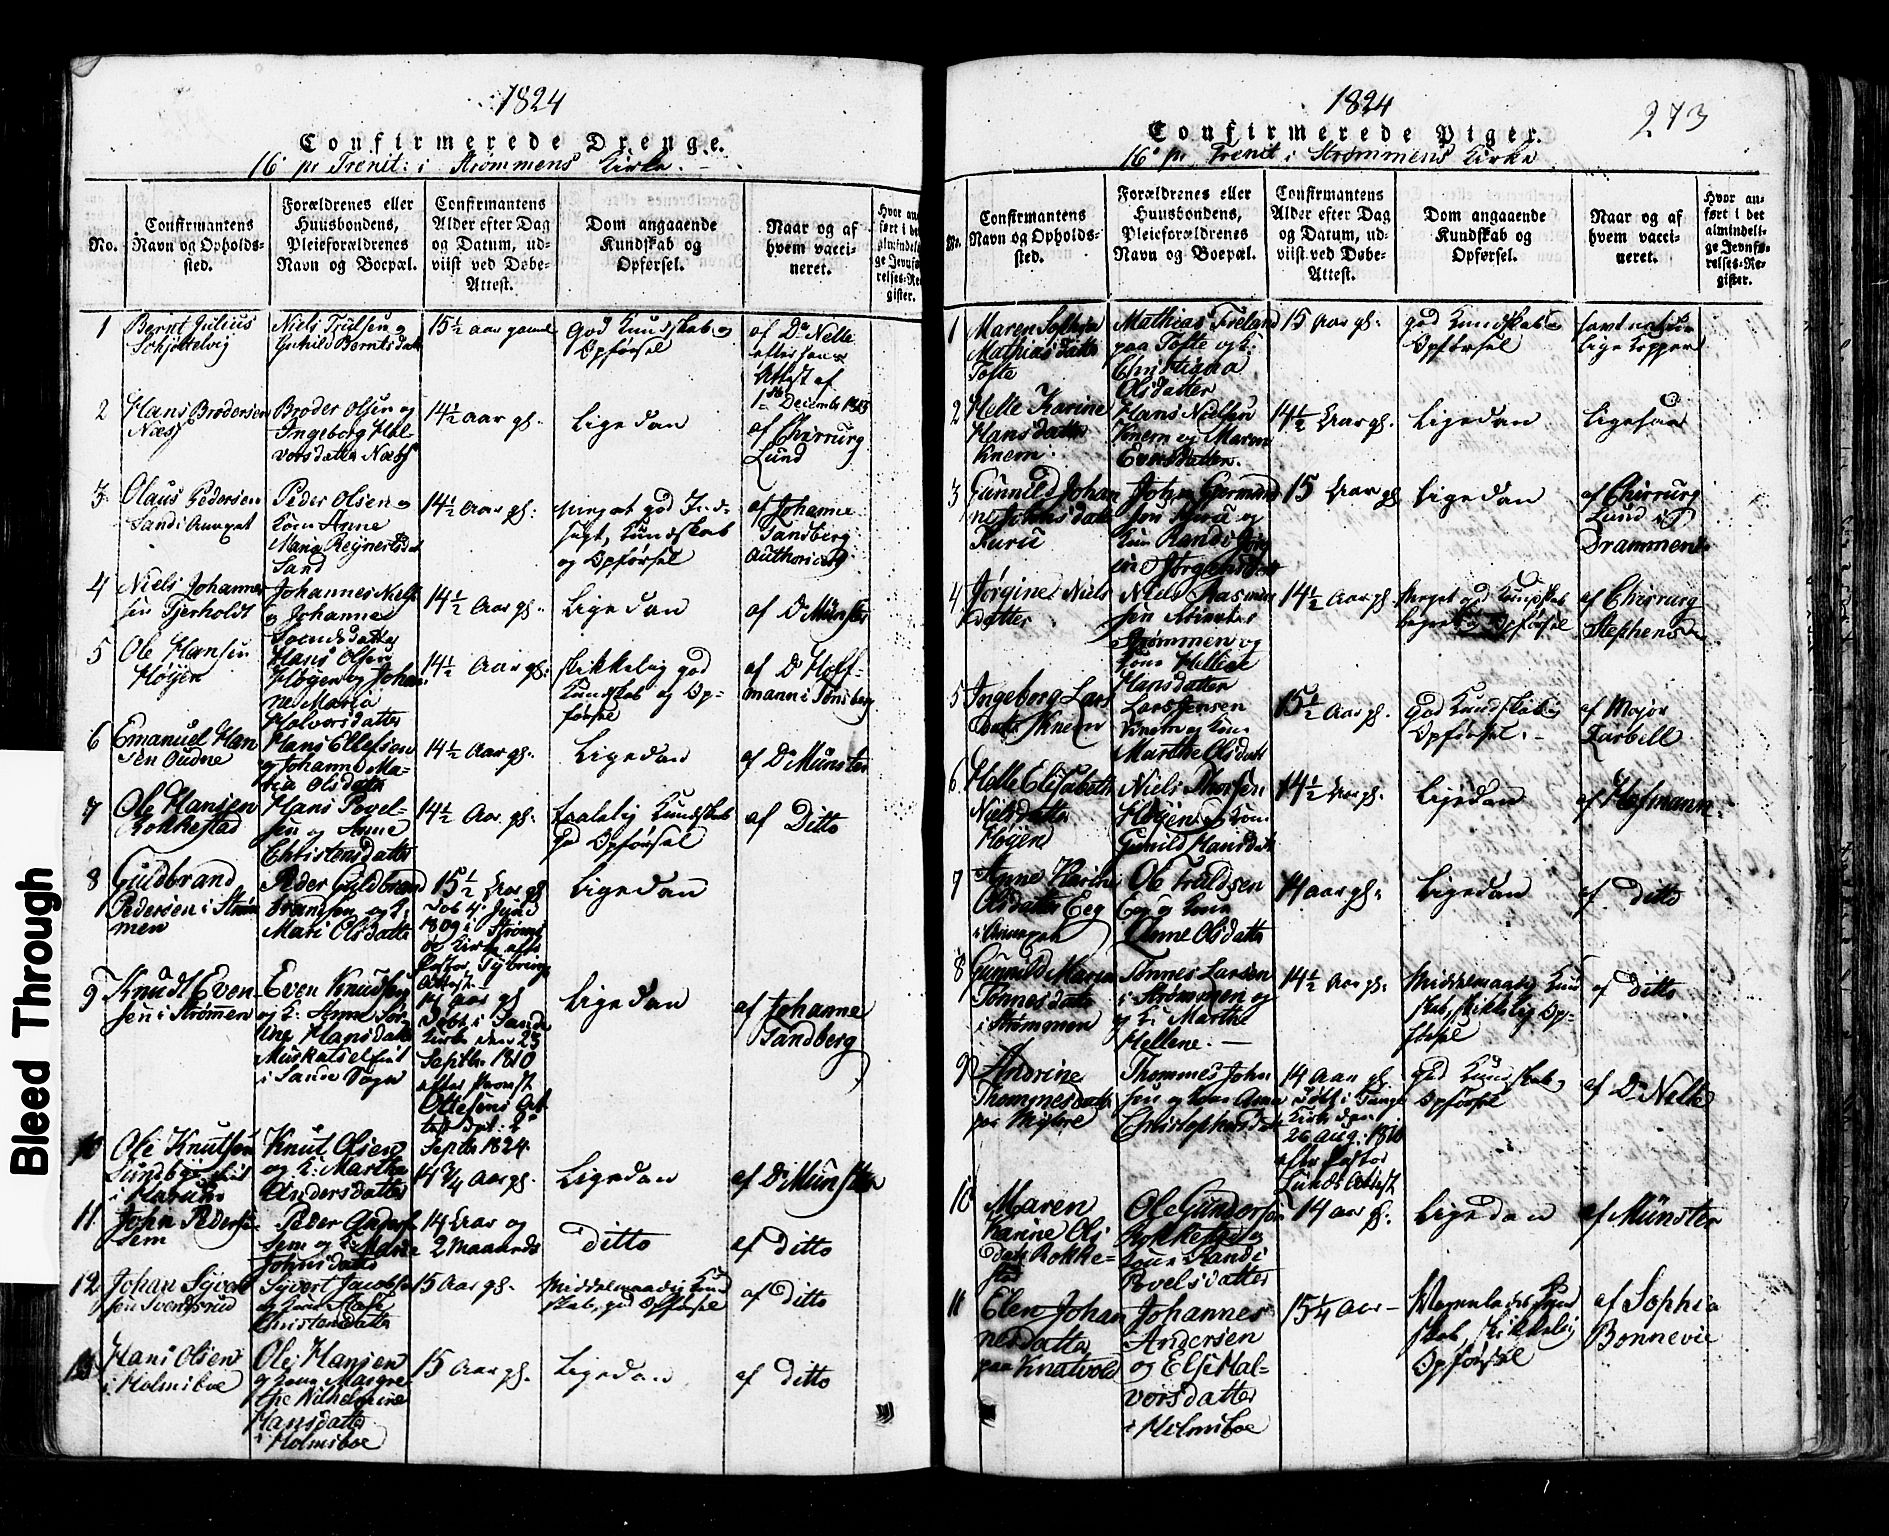 Bleed Through
1824
Confirmerede Drenge.
16 pr Trenit: i Strømmens Kirke.
No.
Confirmantens
Navn og Opholds-
sted.
Forældrenes eller
Huusbondens,
Pleieforældrenes
Navn og Boepæl.
Confirmantens
Alder efter Dag
og Datum, ud-
viist ved Døbe-
Attest.
Dom angaaende
Kundskab og
Opførsel.
Naar og af
hvem vacci-
neret.
1
Bernt Julius
Schjøttelvig
Niels Trulsen og
Guhild Berntsdatt
15½ aar gammel
god Kundskab og
Opførsel
af Dr Nelle
efter hans
Attest af
1ste December
2
Hans Brodersen
Næss
Broder Olsen og
Ingeborg Hal-
vorsdatter Næss
14½ aar gl.
Ligedan
af Chirurg
Lund
3
Olaus Pedersen
Sand i Annexet
Peder Olsen og
Kone Anne
Maria Reynertsdat
Sand
14½ Aar gl.
meget god Ind-
sigt, Kundskab
og Opførsel
af Johanne
Sandberg
authoriseret
4
Niels Johannes
sen Tjerholdt
Johannes Niels
og Johanne
Svendsdatter
14½ Aar gl.
Ligedan
af Dr Münster
5
Ole Hansen
Høyen
Hans Olsen
Høyen og Johan-
ne Maria
Halvorsdatter
14½ Aar gl.
skikkelig god
Kundskab og Op-
førsel
af Dr Hoff-
mann i Tønsberg
6
Emanuel Han
sen Oudne
Hans Ellefsen
og Johanne Ma-
ria Olsdatter
14½ Aar gl.
Ligedan
af Dr Münster
7
Ole Hansen
Rokkestad
Hans Povel-
sen og Anne
Christensdatter
14½ Aar gl.
taalelig Kundskab
god Opførsel
af Ditto
8
Guldbrand
Pedersen i Strøm
men
Peder Guldbrand
og K:
Mari Olsdatter
15½ Aar gl
døb 4. Juni
1809 i Strøms
Kirke efter
Pastor Tybring
Attest
Ligedan
9
Knudt Even-
sen i Strømen
Even Knudsen
og K: Anne
Hansdatter
i Sande Sogn
14 Aar gl
døbt i Sande
Kirke den 23
Septbr 1810
efter Provst
Ottesens At-
test dat: 2
Septbr 1824.
Ligedan
af Johanne
Sandberg
10
Ole Knutsen
Knut Olsen
og K: Martha
Andersdatter
14¾ Aar gl.
Ligedan
af Dr Münster
11
John Peders
Sem
Peder Anders
Sem og K: Maria
Johnsdatter
14 Aar og
2 Maaneder
ditto
af ditto
12
Johan Syvert
sen Svendsrud
Syvert Jacobs
og Kone
Christensdatter
15 Aar gl.
Middelmaadig Kund
skab, god Opførsel
af ditto
13
Hans Olsen
i Holmsboe
Ole Hansen
og Kone Margre
the Wilhelmine
Hansdatter
i Holmsboe
15 Aar gl.
Ligedan
af ditto
1824
273
Confirmerede Piger.
16 pr Trenit i Strømmens Kirke
No.
Confirmantens
Navn og Opholds-
sted.
Forældrenes eller
Huusbondens,
Pleieforældrenes
Navn og Boepæl.
Confirmantens
Alder efter Dag
og Datum, ud-
viist ved Døbe-
Attest.
Dom angaaende
Kundskab og
Opførsel.
Naar og af
hvem vacci-
neret.
Hvor an-
ført i det
almindeli-
ge Jevnfø-
relses-Re-
gister.
1
Maren Sophia
Mathiasdatter
Tofte
Mathias Freland
paa Tofte og K:
Christiana
Olsdatter
15 Aar gl.
god Kundskab og
Opførsel
havt natur
lige Kopper
2
Helle Karine
Hansdatter
Knem.
Hans Nielsen
Knem og Maren
Eversdatter.
14½ Aar gl.
Ligedan
Ligesaa
3
Gunnild Johan
ne Johnsdatter
John
15 Aar gl
Ligedan
af Chirurg
Lund i
Drammen
4
Jørgine Niels
datter
Niels Rasmus
sen
Strømmen og
Kone Hellene
Hansdatter
14½ Aar gl
meget god Kundskab
Opførsel
af Chirurg
Stephens
5
Ingeborg Lars
datter Knem
Lars Jensen
Knem og Kone
Marthe Olsdatt
15½ Aar gl.
god Kundskab og
Opførsel.
af Major
Tarbell
6
Helle Elisabeth
Nielsdatter
Høyen
Niels Thorsen
Høyen og Kone
Gunild Hansdat
14½ Aar gl.
Ligedan
af Hofmann
7
Anne Karine
Olsdatter Eeg
i Annexet
Ole Truldsen
Eeg og Kone
Anne Olsdatter
14 aar gl.
Ligedan
af ditto
8
Gunnild Maren
Tønnesdatter
i Strømmen
Tønnes Larsen
i Strømmen og
K: Marthe
Hellene.
14½ Aar gl.
Middelmaadig Kund
skab, skikkelig Op-
førsel
af ditto
9
Andrine
Thommesdatter
paa Myhre
Thommes John
sen og Kone Anne
Christophersdat
14 Aar gl
døbt i
Kirke den
26 Aug: 1810
efter Pastor
Lunds Attest
god Kundskab og
Opførsel
af Dr Nelle
10
Maren
Karine Ols
datter Rokke-
stad
Ole Gundersen
Rokkestad og
Kone Randi
Povelsdatter
14 aar gl.
Ligedan
af Münster
11
Elen Johan
nesdatter
paa Knatvold
Johannes
Andersen
og Else Hal-
vorsdatter
i Holmsboe
15¼ Aar
Kund
skab, skikkelig
Opførsel
af Sophia
Bonnevie